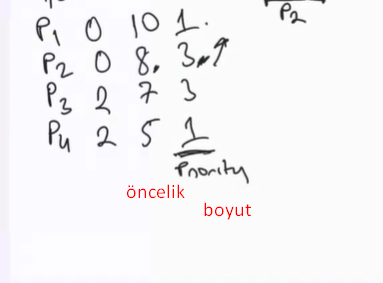 P2
P1 0 10 1.
P2 0 8. 3.↑
P3 2 7 3
P4 2 5 1
Priority
öncelik
boyut